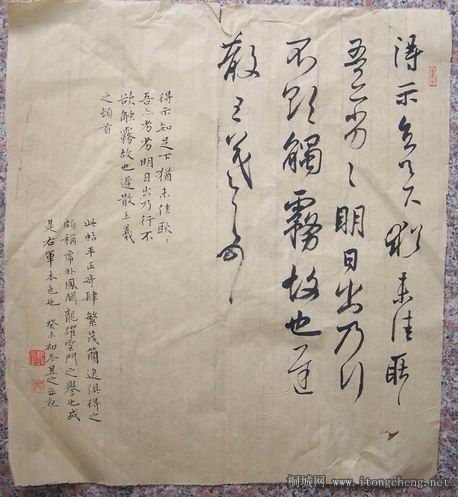 得示知足下猶未佳耿〻
吾亦劣〻明日出乃行
不欲觸霧故也遲
散王羲之頓首
得示知足下猶未佳耿〻
吾亦劣劣明日出乃行不
欲觸霧故也遲散王羲
之頓首
此帖平正奇肆繁茂簡逸俱得之
頗稱虎卧鳳閣龍躍雲門之譽也或
是右軍本色也 癸未初冬之並記
桐城网 www.itongcheng.net